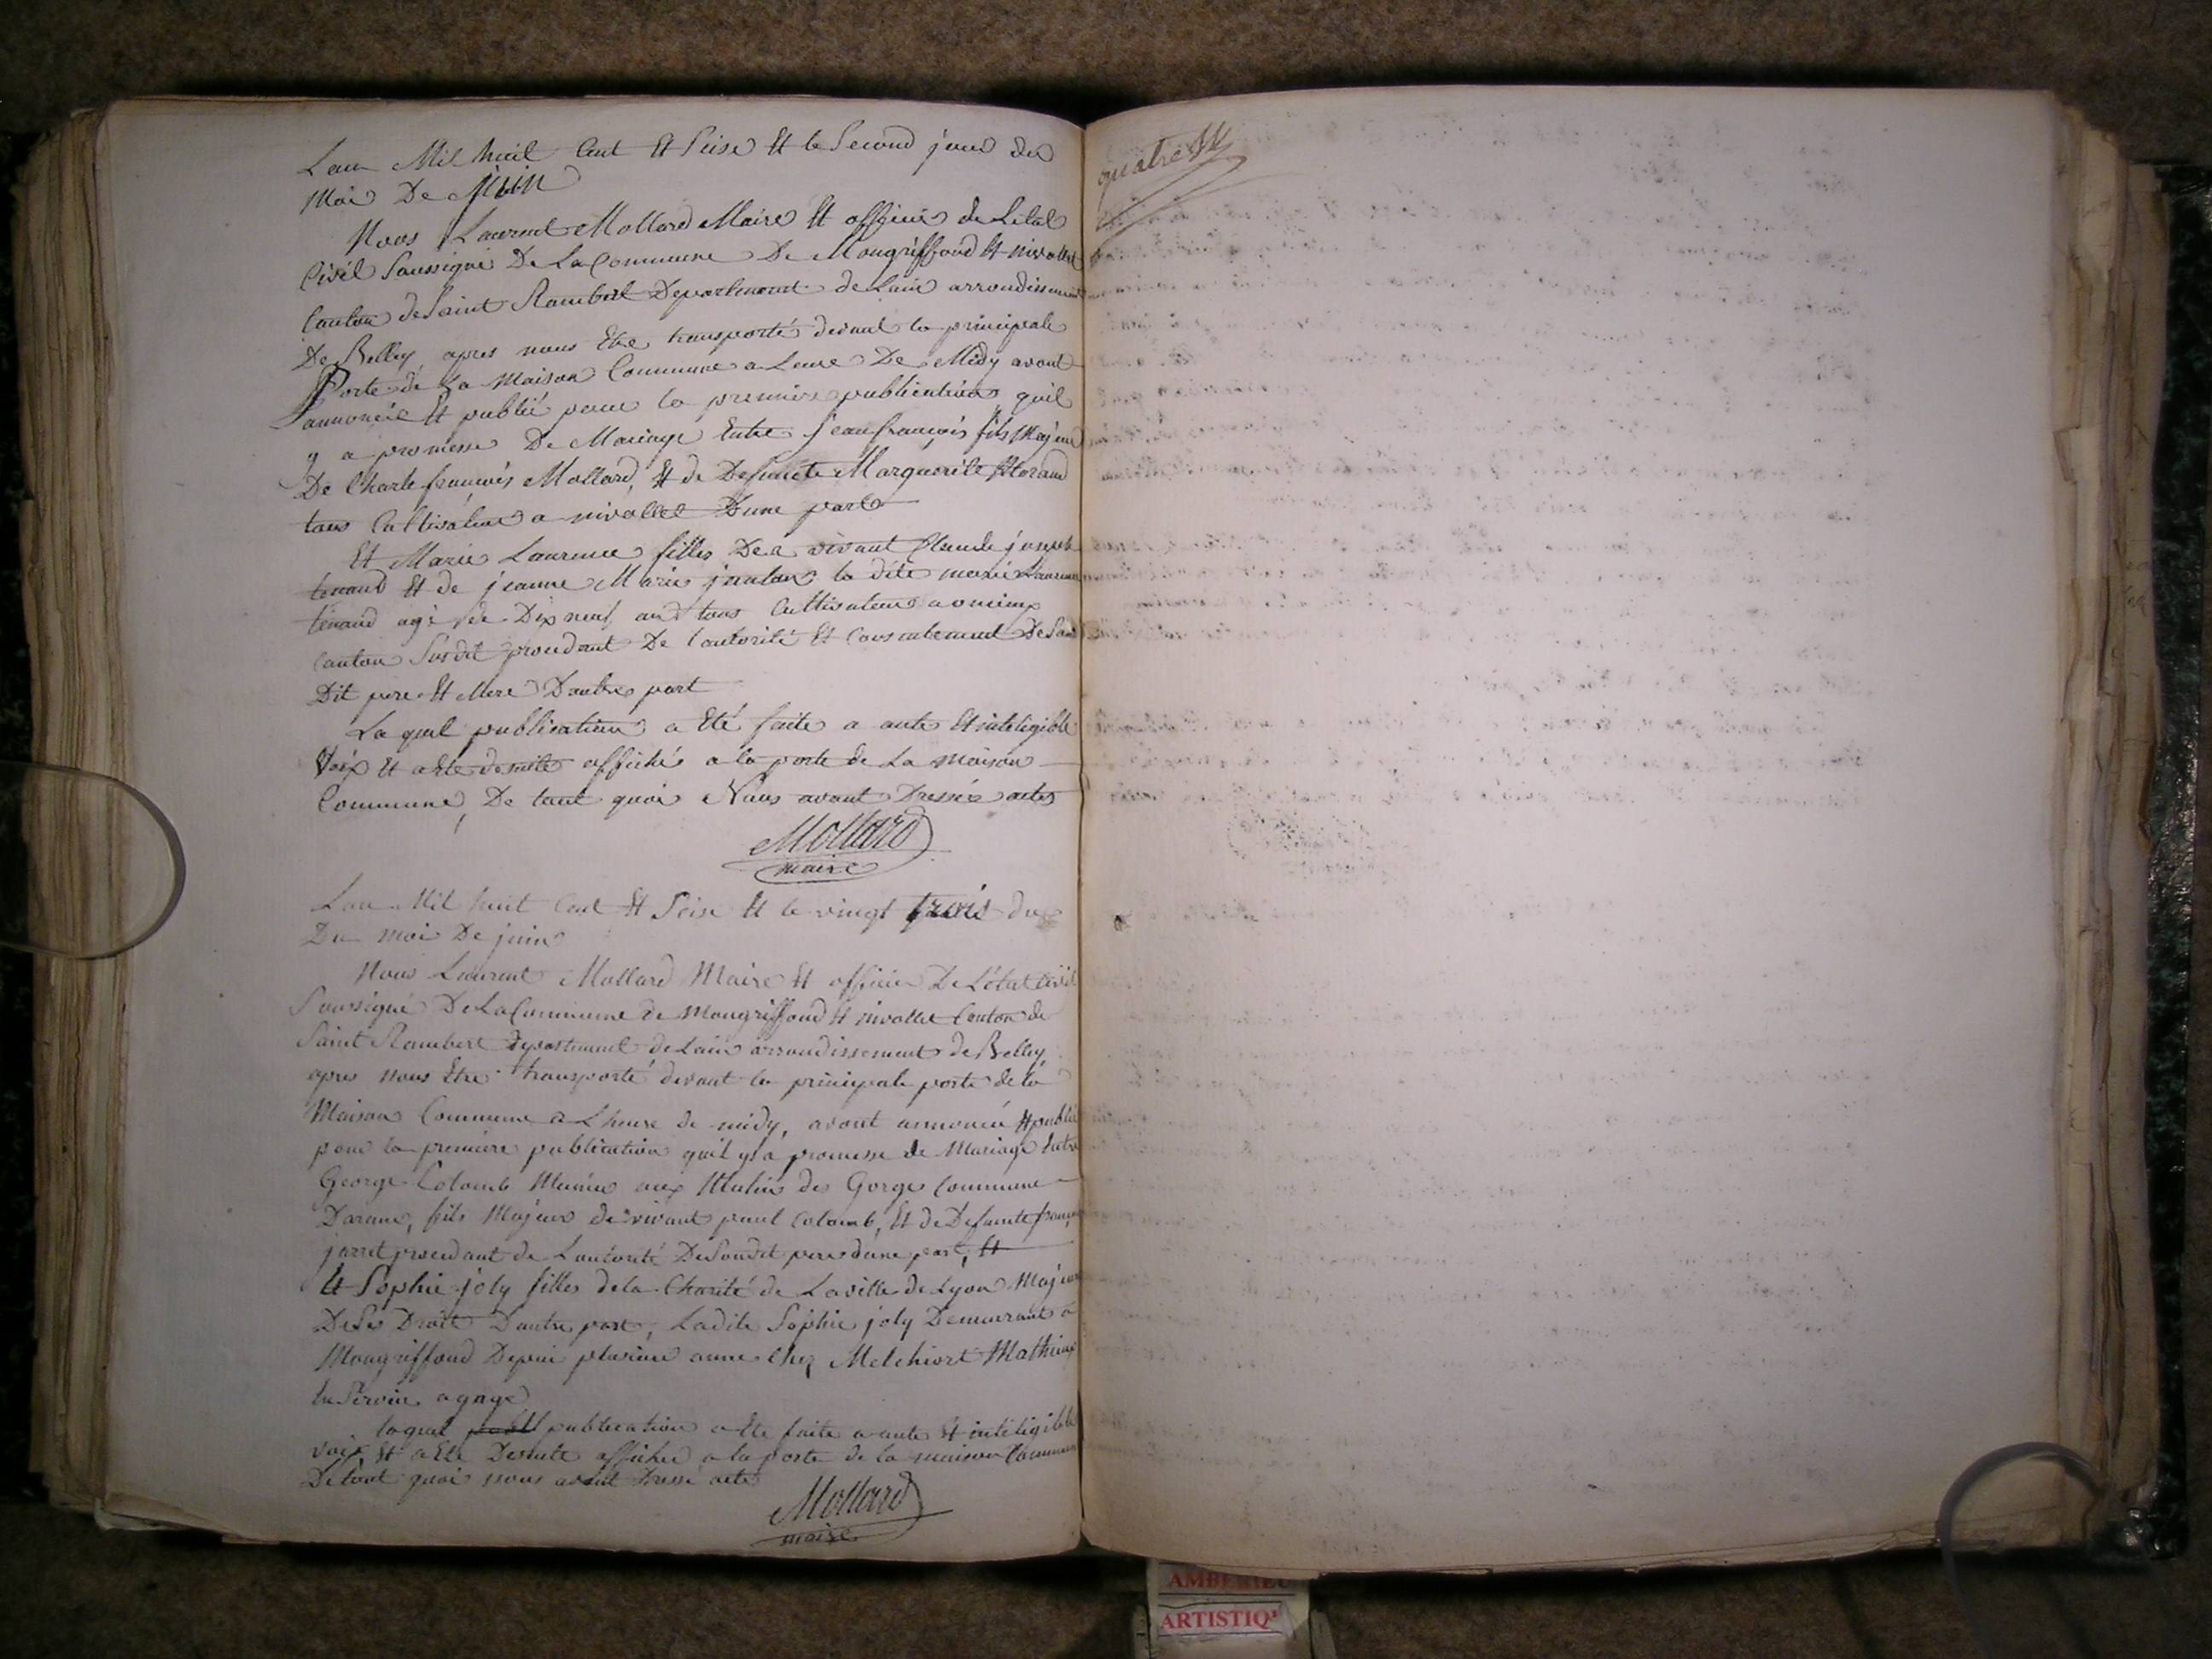 Lan Mil huil Cent Et Seise Et le Second jour du
Moi De Juin
Nous Laurent Mollard Maire Et officier de Létat
Civil Soussigné De La Commune De Mongriffond Et nivollet
Canton de Saint Rambert Departement de Lain arrondissement
De Belley, apres nous Etre transporté devant la principale
Porte de La Maison Commune a Leure De Midy avont
annoncée Et publié pour la premiere publication, quil
y a promesse De Mariage Entre jean françois fils Majeur
De Charle françois Mollard, Et de Defuncte Marguerite
tous Cultivateur a nivollet Dune part
Et Marie Laurence filles De vivant Claude joseph
tenand Et de jeanne Marie la dite marie Laurence
tenand agé de Dix neuf an tous Cultivateur a oncieux
Canton Susdit procedant De lautorité Et Consentement De Sont
Dit pere Et Mere Dautre part
La quel publication a Eté faite a aute Et inteligible
Voix Et a Eté desuite affichée a la porte de La Maison
Commune, De tout quoi Nous avont Dressée acte
Mollard
maire
Lan Mil huit Cent Et Seise Et le vingt trois du
Du moi De juin
Nous Laurent Mollard Maire Et officier De Létat Civil
Soussigné De La Commune de Mongriffond Et nivollet Canton de
Saint Rambert Departement de Lain arrondissement de Belley,
apres nous Etre transporté devant la principale porte de la
Maison Commune a Lheure de midy, avont annoncée Et publié
pour la premiere publication quil y a promesse de Mariage Entre
George Colomb Munier aux Mulin des Gorge Commune
Darane, fils Majeur de vivant paul Colomb, Et de Defuncte
jarret procedant de Lautorité De Sondit pere dune part, Et
Et Sophie joly filles de la Charité de La ville de Lyon Majeur
De Ses Droit Dautre part, Ladite Sophie joly Demeurant a
Mongriffond Depui plusieur anne Chez Melchiort Mathieux
En Service a gage
laquel publ publication a Eté faite a aute Et inteligible
voix Et a Eté Desuite affichée a la porte de la maison Commune
De tout quoi nous avont Dressé acte
Mollard
maire
quatre
AMBERIEU
ARTISTIQ